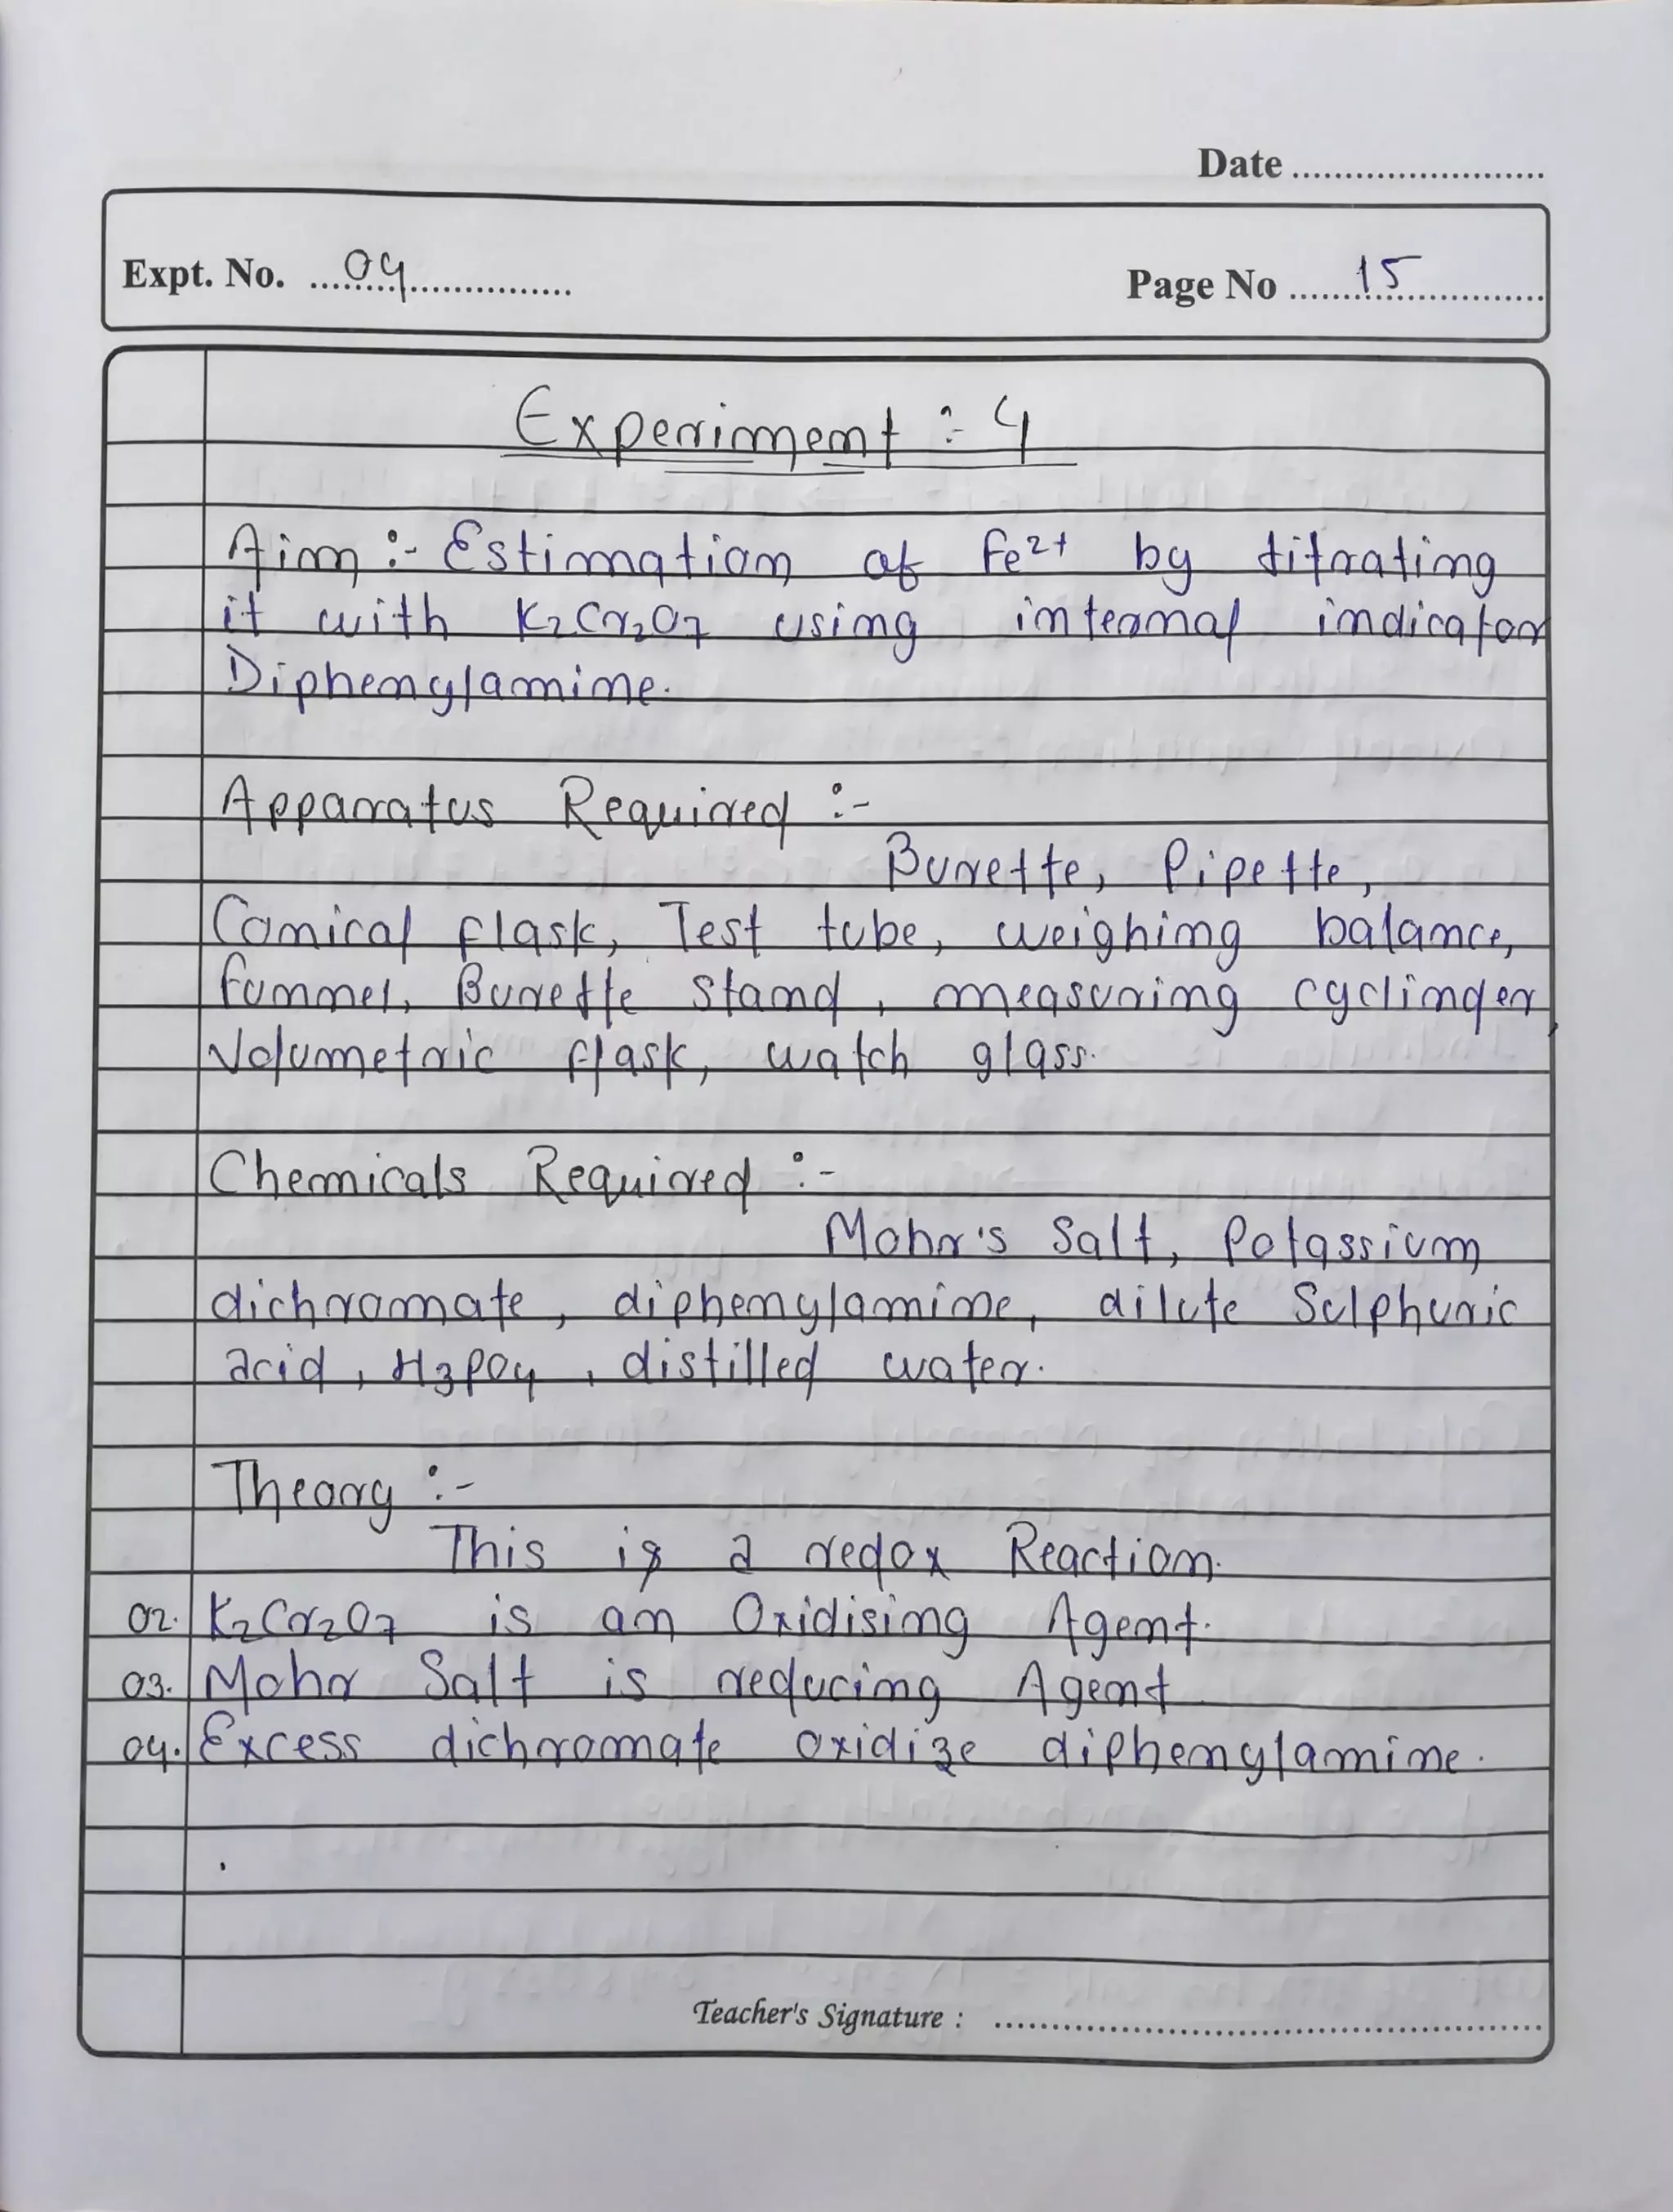 Date ........................
Expt. No. ....04................
Page No ......15..................
Experiment :- 4
Aim :- Estimation of Fe²⁺ by titrating
it with K₂Cr₂O₇ using internal indicator
Diphenylamine.
Apparatus Required :-
Burette, Pipette,
Conical flask, Test tube, weighing balance,
funnel, Burette stand, measuring cyclinder,
Volumetric flask, watch glass.
Chemicals Required :-
Mohr's Salt, Potassium
dichromate, diphenylamine, dilute Sulphuric
acid, H₃PO₄, distilled water.
Theory :-
This is a redox Reaction.
02. K₂Cr₂O₇ is an Oxidising Agent.
03. Mohr Salt is reducing Agent
04. Excess dichromate oxidize diphenylamine.
Teacher's Signature : ................................................